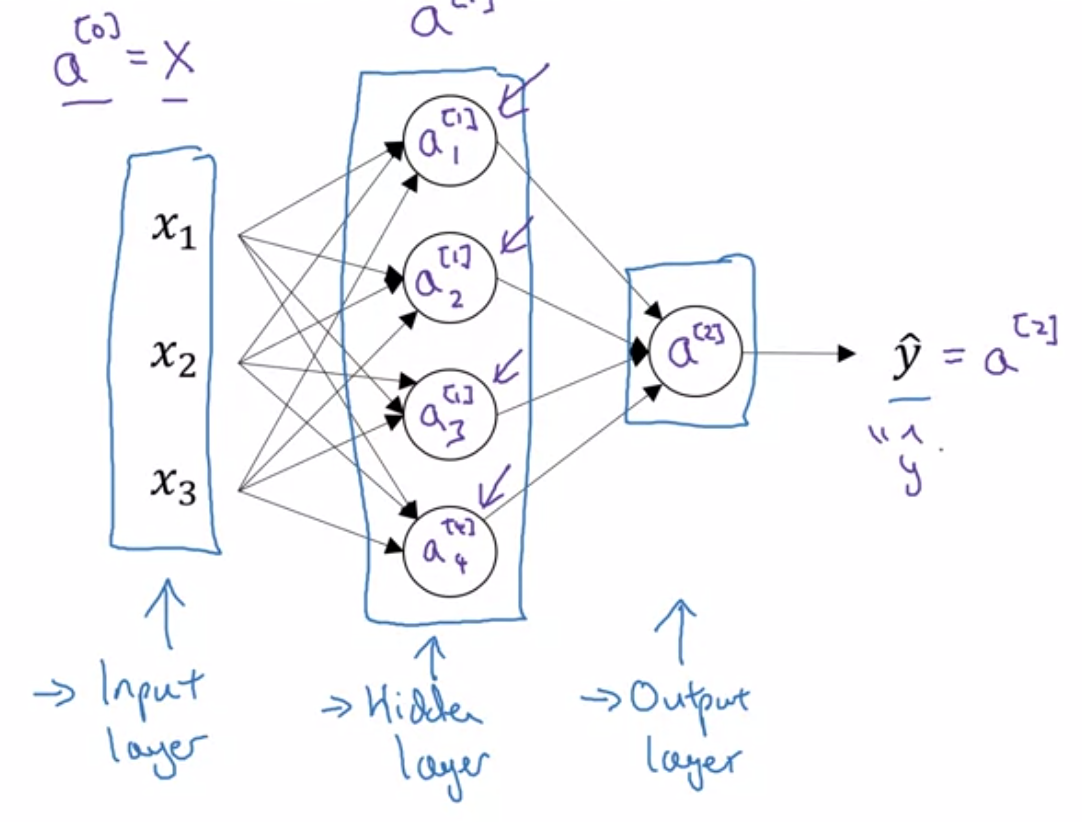 a^[0] = X
a^[1]
x₁
x₂
x₃
a₁^[1]
a₂^[1]
a₃^[1]
a₄^[4]
a^[2]
ŷ = a^[2]
" ŷ
→ Input
layer
→ Hidden
layer
→ Output
layer